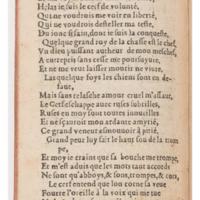 Helas ie suis le cerf de volunté,
Qui ne voudrois me voir en liberté,
Qui ne voudrois desteller ma teste,
Du ionc si sain, donc ie suis la conqueste,
Quelque grand roy de la chasse est le chef,
Vn dieu puissant autheur de mon meschef,
A entrepris sans cesse me poursuyure,
Et ne me veut laisser mourir ne viure,
Las quelque foys les chiens sont en defaut,
Mais sans relasche amour cruel m'assaut,
Le Cerf se sçhappe auec ruses subtilles,
Ruses en moy sont toutes inutiles
Et ne sçauroit mon ardante amytié,
Ce grand veneur asmouuoir à pitié,
Grand peur luy fait le haut son de la trompe,
Et moy ie crains que sa bouche me trompe,
Et m'est aduis que les mots tant accords
Ne sont qu'abboys, & sons, trompes, & cors,
Le cerf entend que lon corne sa veue
Fourre l'oreille à la voix qui me tue